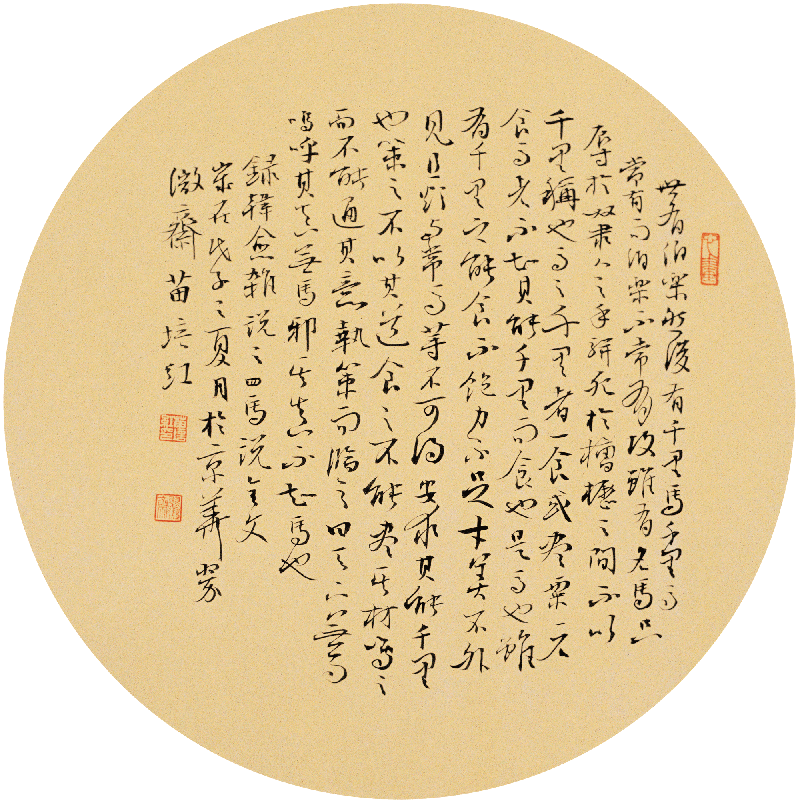 世有伯樂然後有千里馬千里馬
常有而伯樂不常有故雖有名馬只
辱於奴隸人之手駢死於槽櫪之間不以
千里稱也馬之千里者一食或盡粟一石
食馬者不知其能千里而食也是馬也雖
有千里之能食不飽力不足才美不外
見且欲與常馬等不可得安求其能千里
也策之不以其道食之不能盡其材鳴之
而不能通其意執策而臨之曰天下無馬
嗚呼其真無馬邪其真不知馬也
録韓愈雜說之四馬說全文
歲在戊子之夏月於京華翠
微齋苗培紅